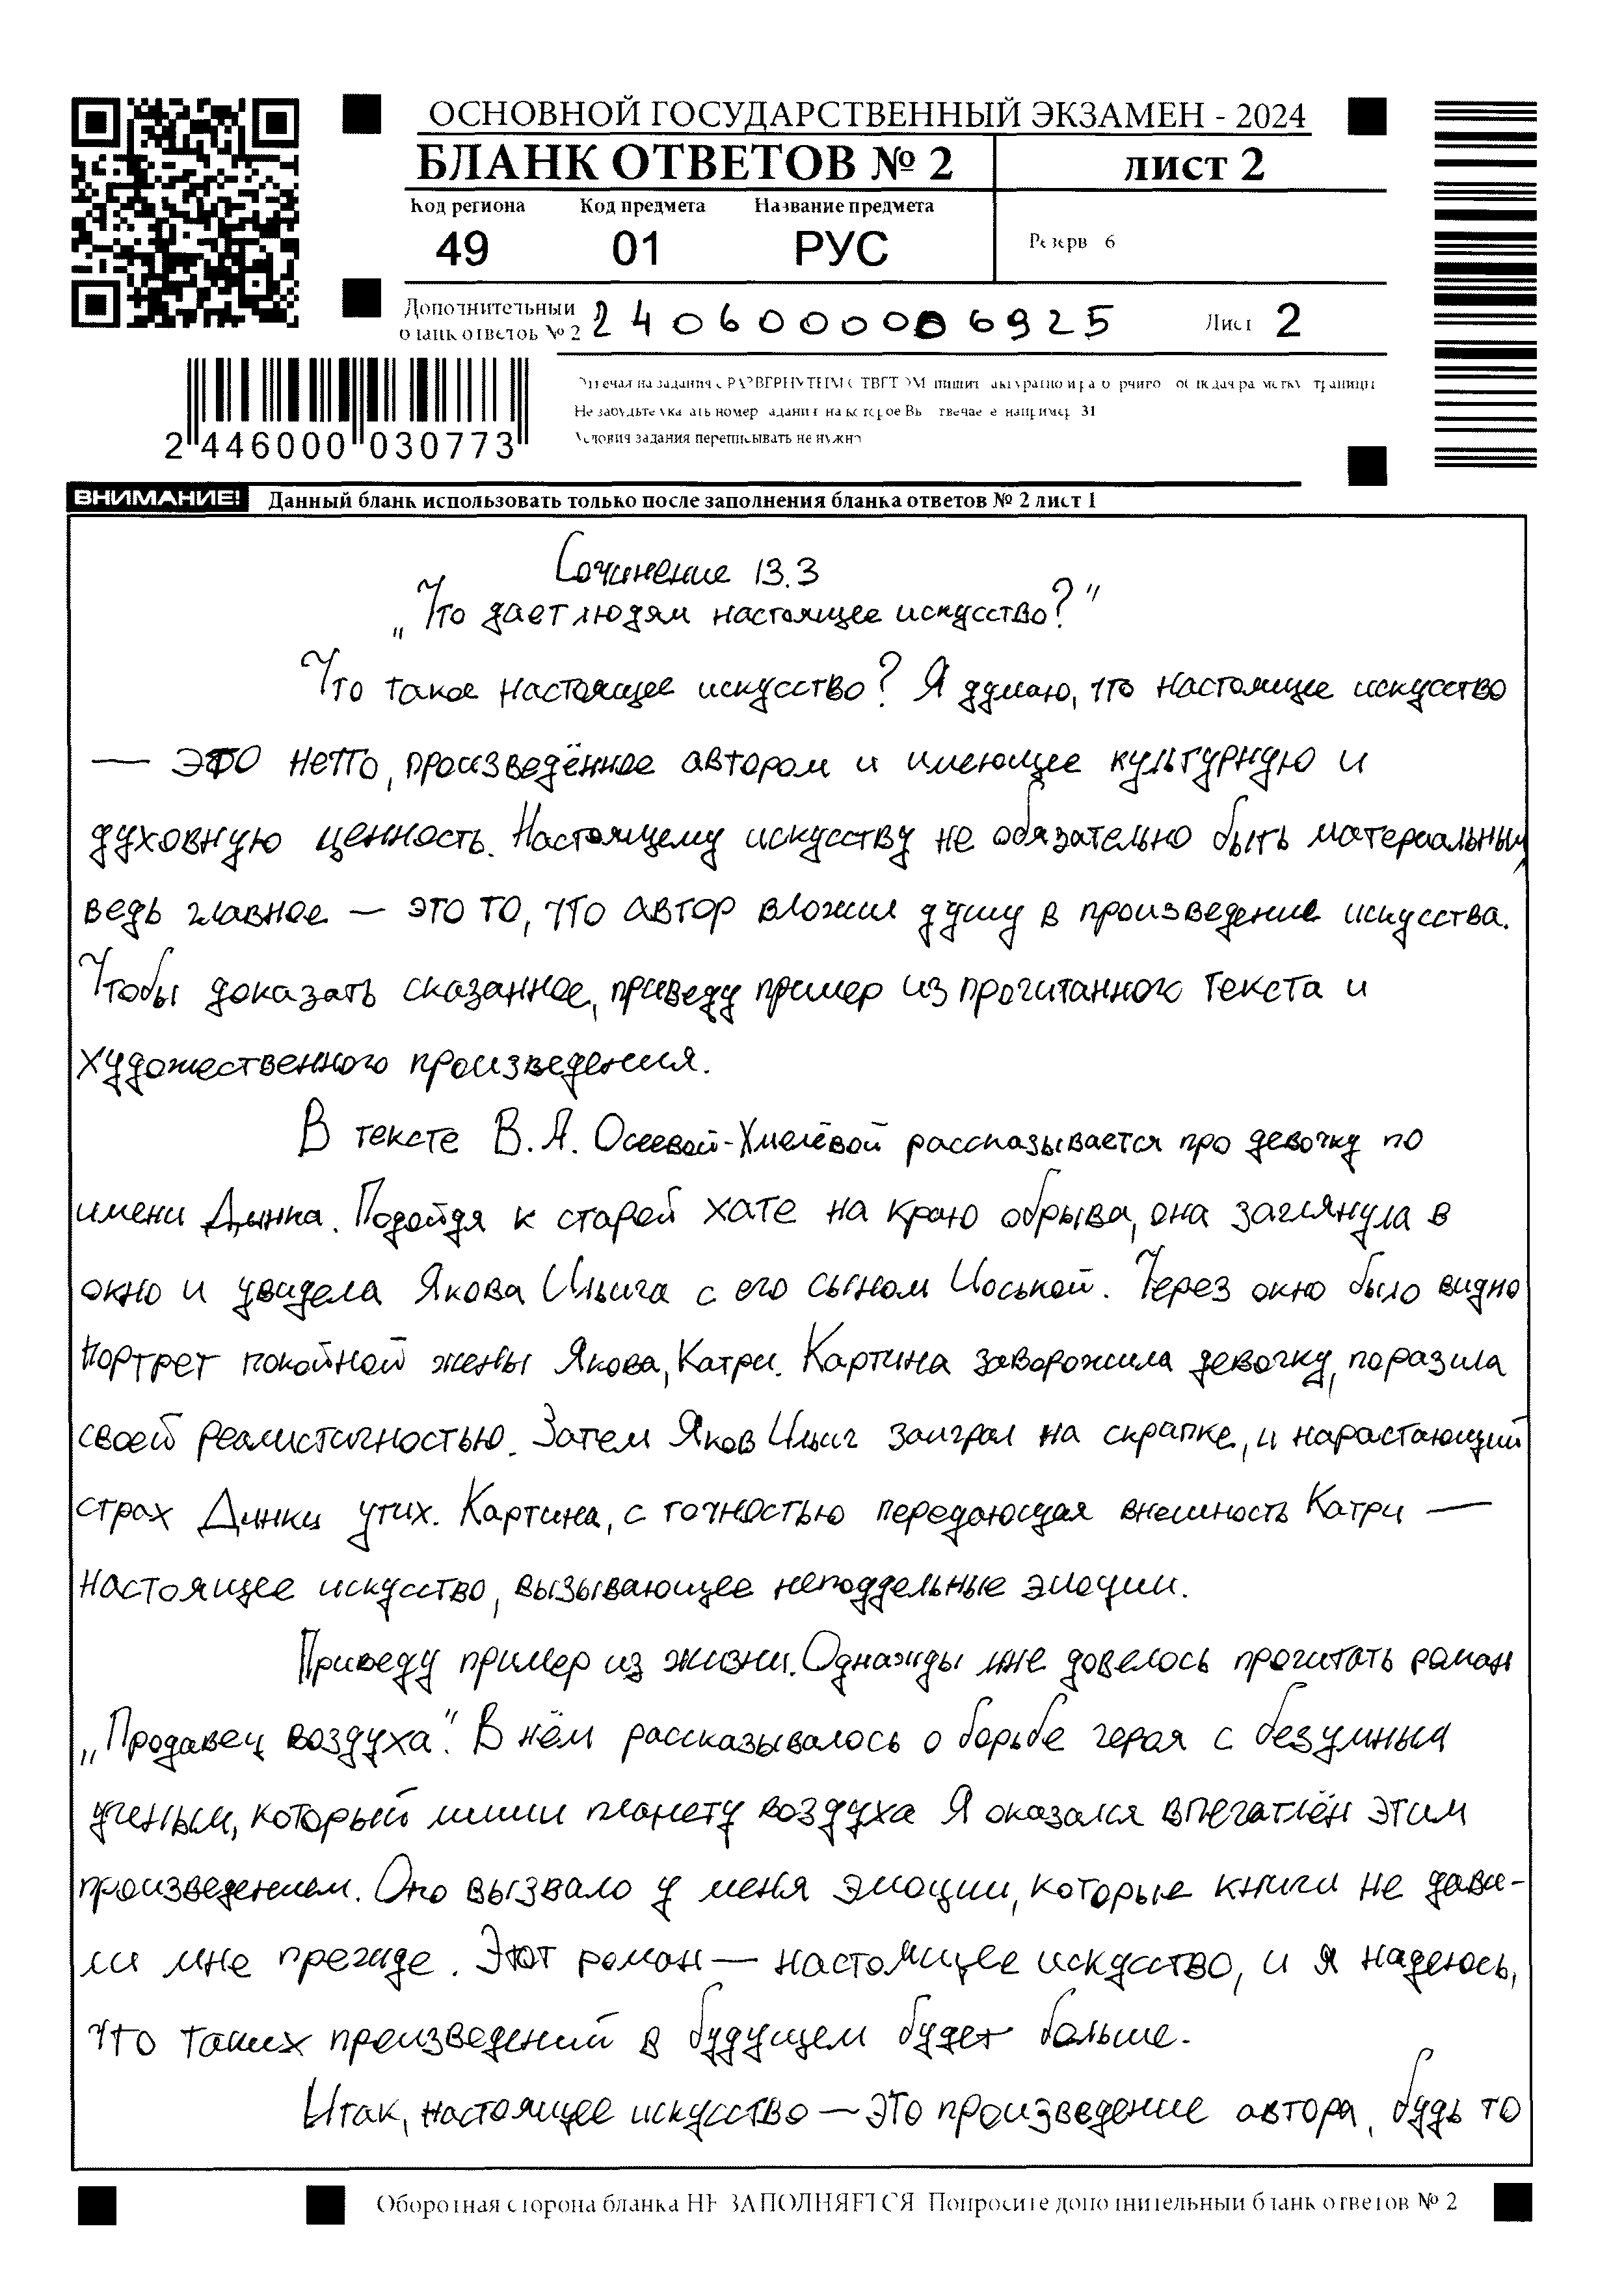 ОСНОВНОЙ ГОСУДАРСТВЕННЫЙ ЭКЗАМЕН - 2024
БЛАНК ОТВЕТОВ № 2
лист 2
Код региона Код предмета Название предмета
49 01 РУС
Резерв 6
Дополнительный
бланк ответов № 2
2406000006925
Лист 2
2 446000 030773
Не забудьте указать номер задания на которое Вы отвечаете например 31
Условия задания переписывать не нужно
ВНИМАНИЕ! Данный бланк использовать только после заполнения бланка ответов № 2 лист 1
Сочинение 13.3
„Что дает людям настоящее искусство?"
Что такое настоящее искусство? Я думаю, что настоящее искусство
— это нечто, произведённое автором и имеющее культурную и
духовную ценность. Настоящему искусству не обязательно быть материальным,
ведь главное — это то, что автор вложил душу в произведение искусства.
Чтобы доказать сказанное, приведу пример из прочитанного текста и
художественного произведения.
В тексте В.А. Осеевой-Хмелёвой рассказывается про девочку по
имени Динка. Подойдя к старой хате на краю обрыва, она заглянула в
окно и увидела Якова Ильича с его сыном Иоськой. Через окно было видно
портрет покойной жены Якова, Катри. Картина заворожила девочку, поразила
своей реалистичностью. Затем Яков Ильич заиграл на скрапке, и нарастающий
страх Динки утих. Картина, с точностью передающая внешность Катри —
настоящее искусство, вызывающее неподдельные эмоции.
Приведу пример из жизни. Однажды мне довелось прочитать роман
„Продавец воздуха". В нём рассказывалось о борьбе героя с безумным
учёным, который лишил планету воздуха Я оказался впечатлён этим
произведением. Оно вызвало у меня эмоции, которые книги не дава-
ли мне прежде. Этот роман — настоящее искусство, и я надеюсь,
что таких произведений в будущем будет больше.
Итак, настоящее искусство — это произведение автора, будь то
Оборотная сторона бланка НЕ ЗАПОЛНЯЕТСЯ Попросите дополнительный бланк ответов № 2